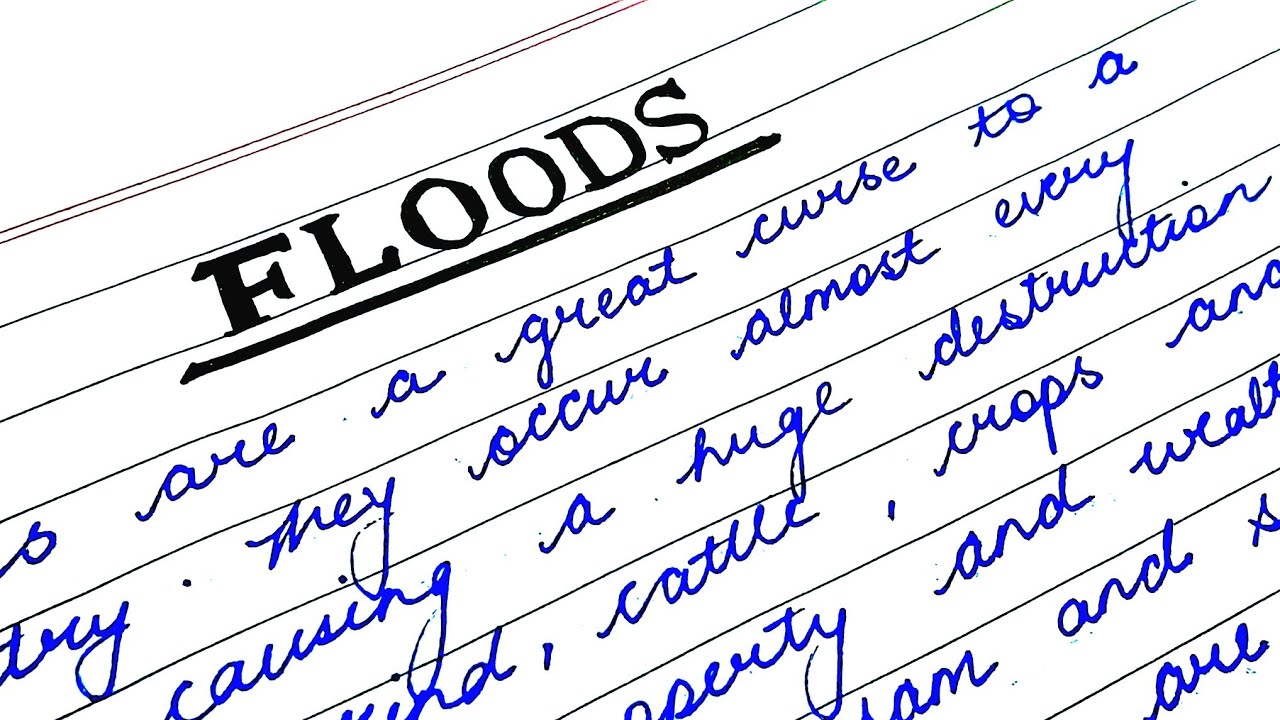 FLOODS
s are a great curse to a
try. They occur almost every
causing a huge destruction
kind, cattle, crops and
operty and wealt
am and s
are